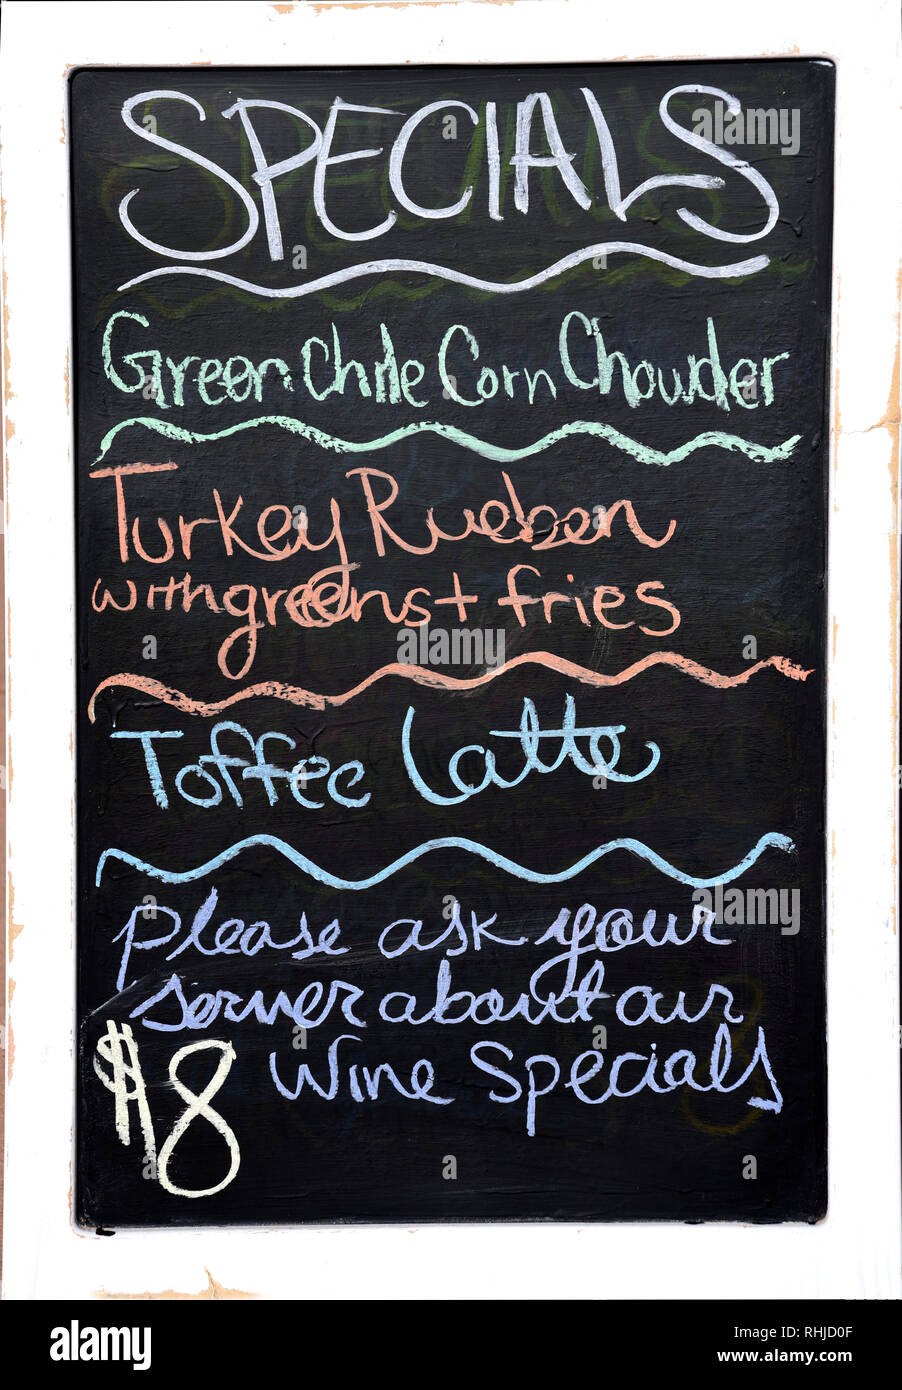 SPECIALS
Green Chile Corn Chowder
Turkey Rueben
with greens + fries
Toffee Latte
please ask your
server about our
$8 Wine Specials
alamy
Image ID: RHJD0F
www.alamy.com